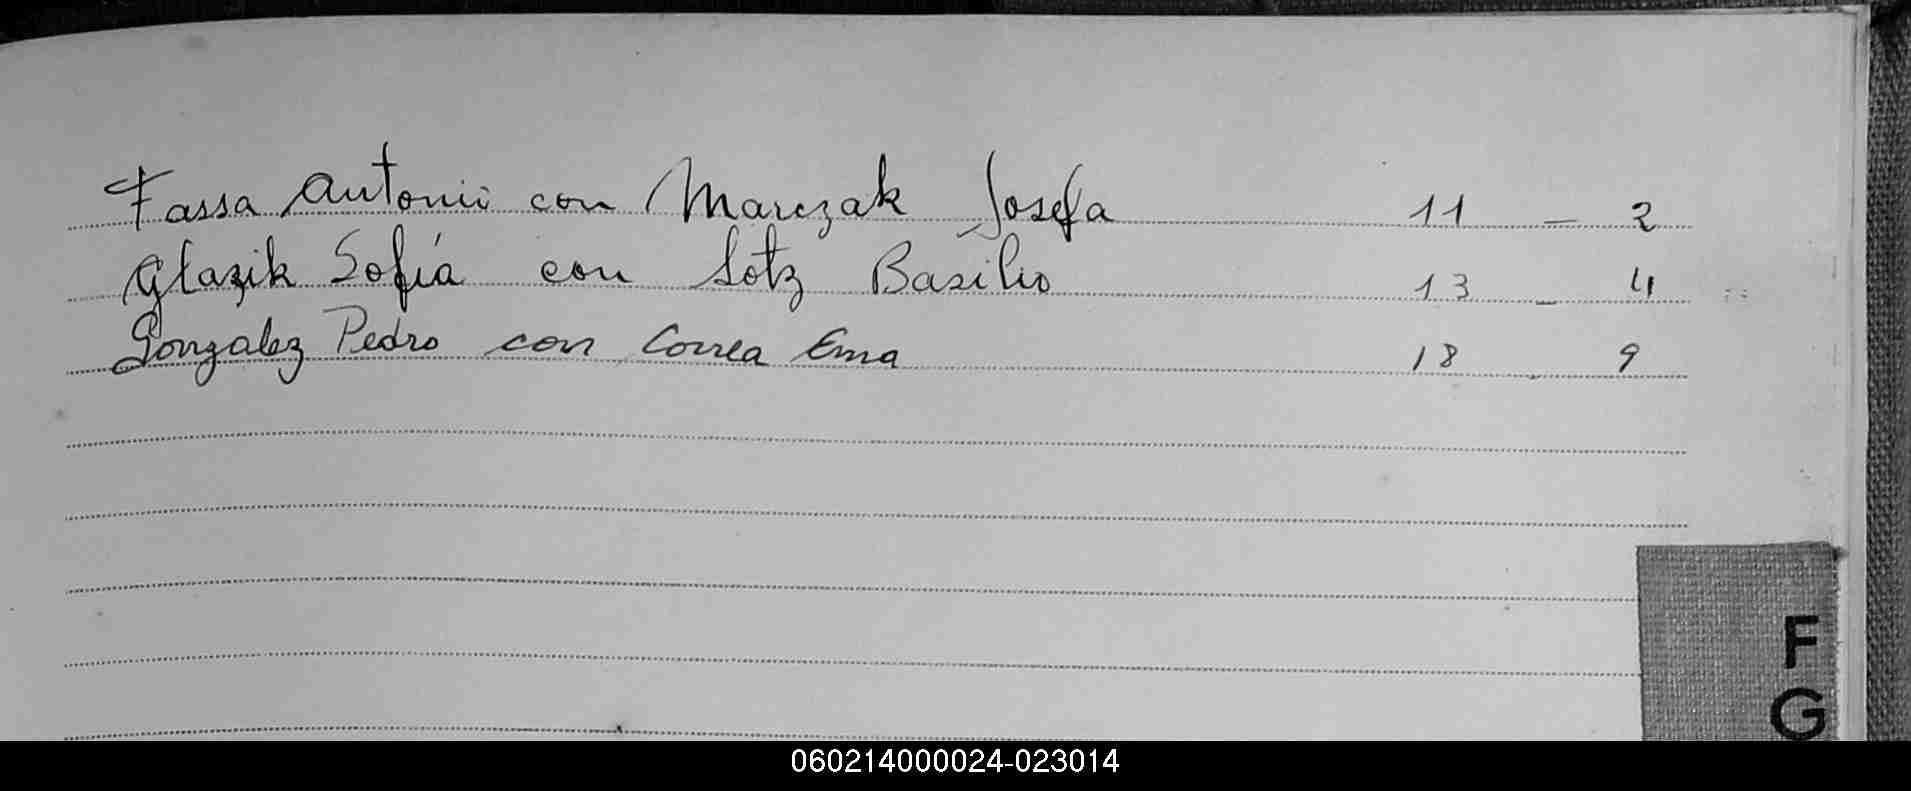 Fassa Antonio con Marczak Josefa 11 – 2
Glazik Sofía con Sotz Basilio 13 – 4
Gonzalez Pedro con Correa Ema 18 – 9
F
G
060214000024-023014